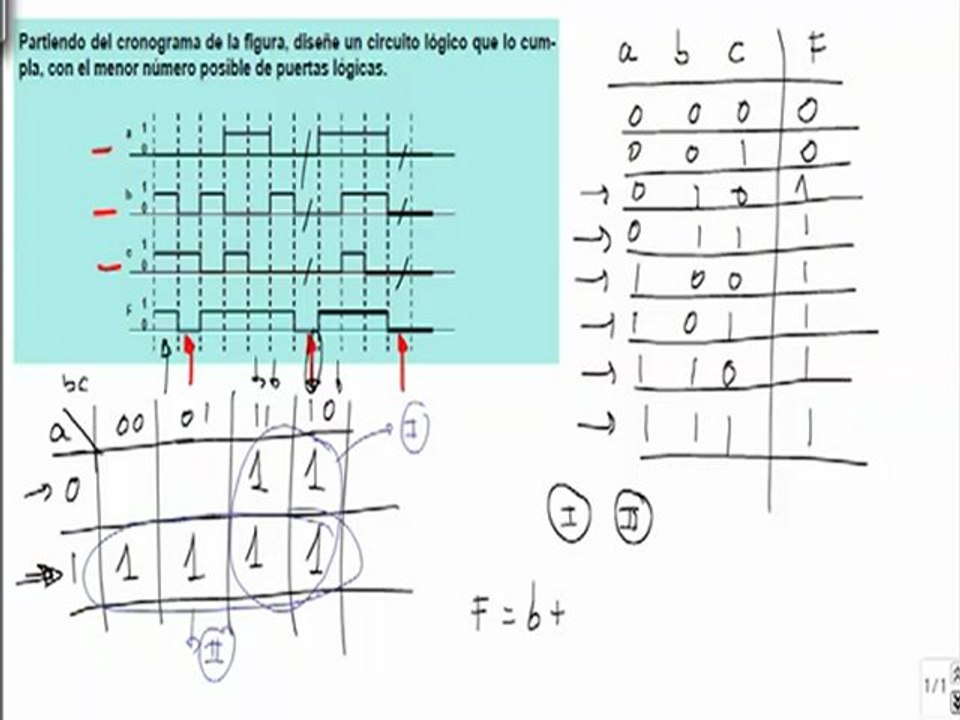 Partiendo del cronograma de la figura, diseñe un circuito lógico que lo cum-
pla, con el menor número posible de puertas lógicas.
a 1 0
b 1 0
c 1 0
F 1 0
a b c F
0 0 0 0
0 0 1 0
→ 0 1 0 1
→ 0 1 1 1
→ 1 0 0 1
→ 1 0 1 1
→ 1 1 0 1
→ 1 1 1 1
bc
a 00 01 11 10 I
→ 0 1 1
→ 1 1 1 1 1
II
I II
F = b +
1/1